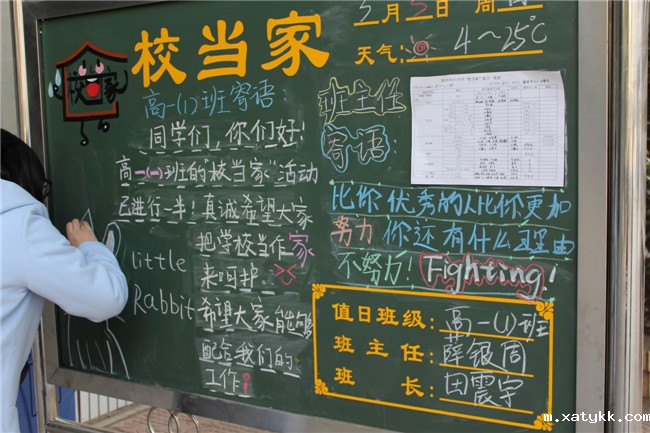 校当家
5月5日 周
天气: 4~25℃
校家
高一(1)班寄语:
同学们,你们好!
高一(一)班的"校当家"活动
已进行一半!真诚希望大家
把学校当作家
来呵护..
希望大家能够
配合我们的
工作!
little
Rabbit
班主任
寄语:
比你优秀的人比你更加
努力 你还有什么理由
不努力! Fighting!
值日班级: 高一(1)班
班 主 任: 薛银周
班 长: 田震宇
m.xatykk.com